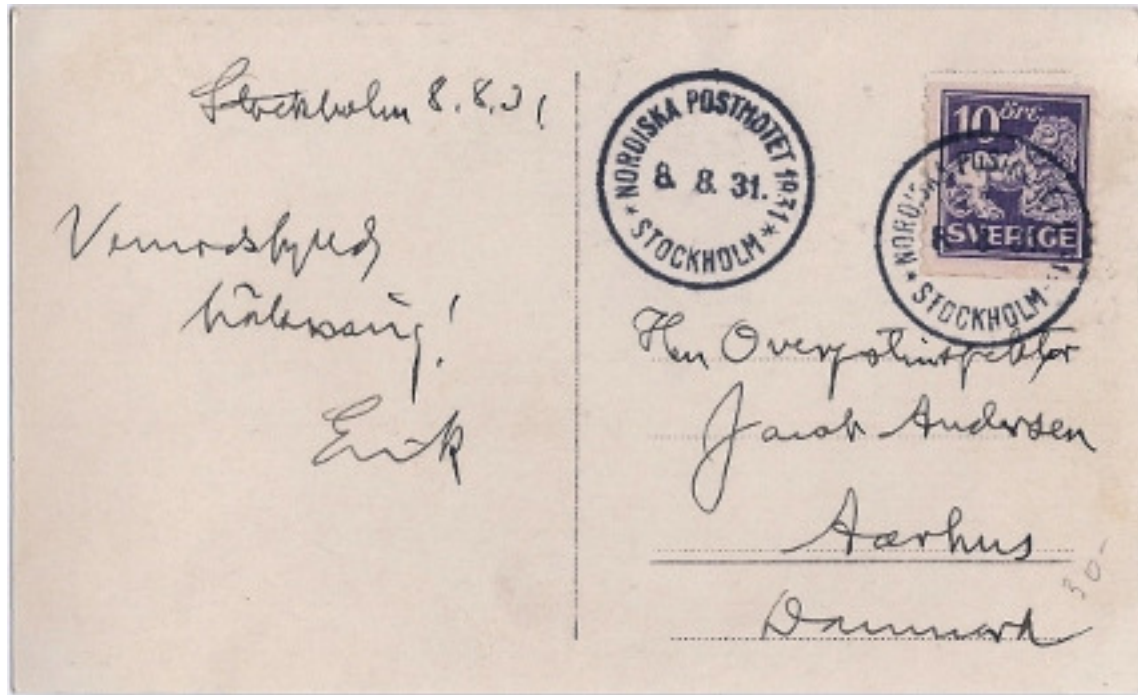 Stockholm 8.8.31
Vemodsfylld
hälsning!
Erik
NORDISKA POSTMÖTET 1931
8. 8. 31.
* STOCKHOLM *
10 öre
SVERIGE
NORDISKA POST
* STOCKHOLM
Herr Overpostinspektør
Jacob Andersen
Aarhus
Danmark
30-